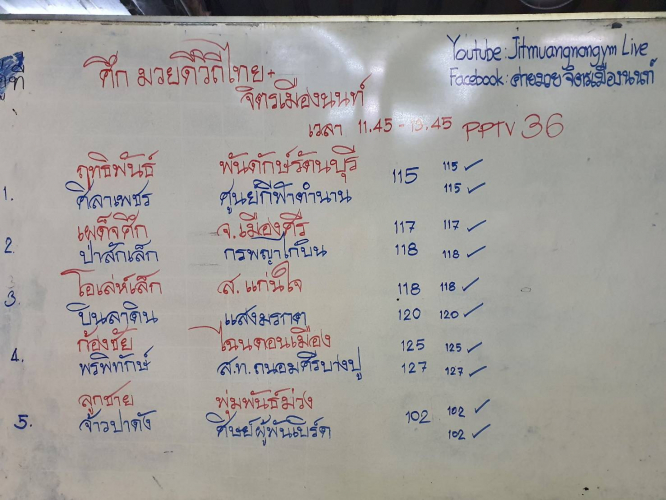 Youtube : Jitmuangnongym Live
Facebook : ค่ายมวยจิตรเมืองนนท์
ศึก มวยดีวิถีไทย+
จิตรเมืองนนท์
เวลา 11.45 - 13.45 PPTV 36
คู่ที่
ฤทธิพันธ์ พันดักษ์รัตนบุรี 115 ✓
1. ศิลาเพชร ศูนย์กีฬาตำนาน 115 115 ✓
เผด็จศึก จ.เมืองศรี 117 117 ✓
2. ป่าสักเล็ก กรพญาไก่บิน 118 118 ✓
โอเล่ห์เล็ก ส.แก่นใจ 118 118 ✓
3. บินลาดิน แสงมรกต 120 120 ✓
ก้องชัย ไฉนดอนเมือง 125 125 ✓
4. พรพิทักษ์ ส.ท.ถนอมศรีบางปู 127 127 ✓
ลูกชาย พุ่มพันธ์ม่วง 102 ✓
5. จ้าวป่าดัง ศิษย์ผู้พันเบิร์ด 102 102 ✓